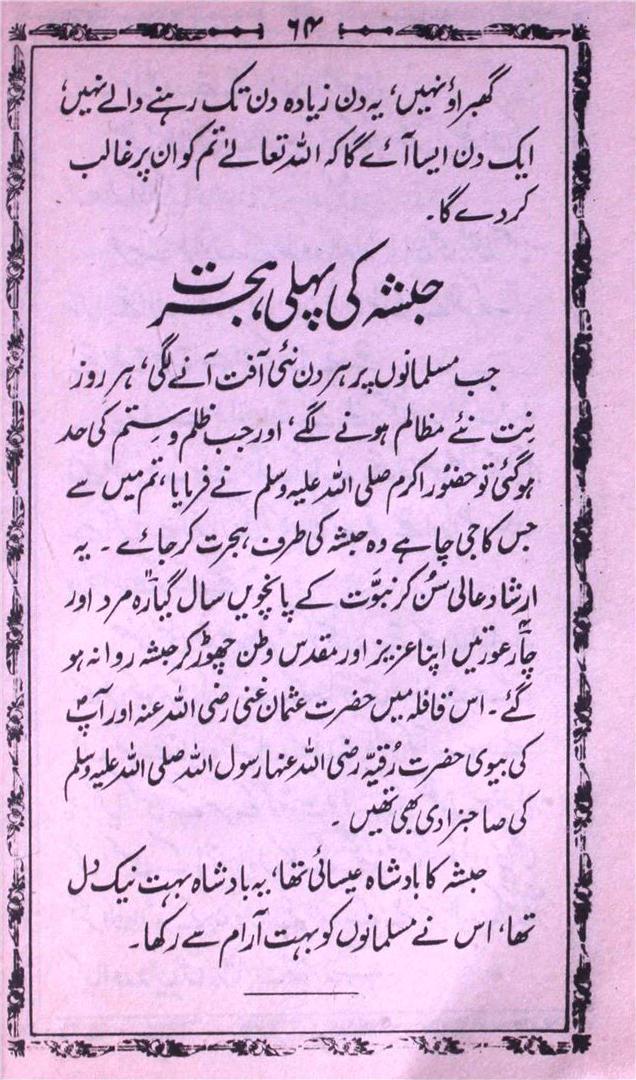 ۶۴
گھبراؤ نہیں، یہ دن زیادہ دن تک رہنے والے نہیں
ایک دن ایسا آئے گا کہ اللہ تعالےٰ تم کو ان پر غالب
کر دے گا۔
حبشہ کی پہلی ہجرت
جب مسلمانوں پر ہر دن نئی آفت آنے لگی، ہر روز
نِت نئے مظالم ہونے لگے، اور جب ظلم و ستم کی حد
ہو گئی تو حضور اکرم صلی اللہ علیہ وسلم نے فرمایا، تم میں سے
جس کا جی چاہے وہ حبشہ کی طرف ہجرت کر جائے۔ یہ
ارشاد عالی سُن کر نبوّت کے پانچویں سال گیارہ مرد اور
چار عورتیں اپنا عزیز اور مقدس وطن چھوڑ کر حبشہ روانہ ہو
گئے۔ اس قافلہ میں حضرت عثمان غنی رضی اللہ عنہ اور آپؓ
کی بیوی حضرت رُقیہّ رضی اللہ عنہا رسول اللہ صلی اللہ علیہ وسلم
کی صاحبزادی بھی تھیں۔
حبشہ کا بادشاہ عیسائی تھا، یہ بادشاہ بہت نیک دل
تھا، اس نے مسلمانوں کو بہت آرام سے رکھا۔